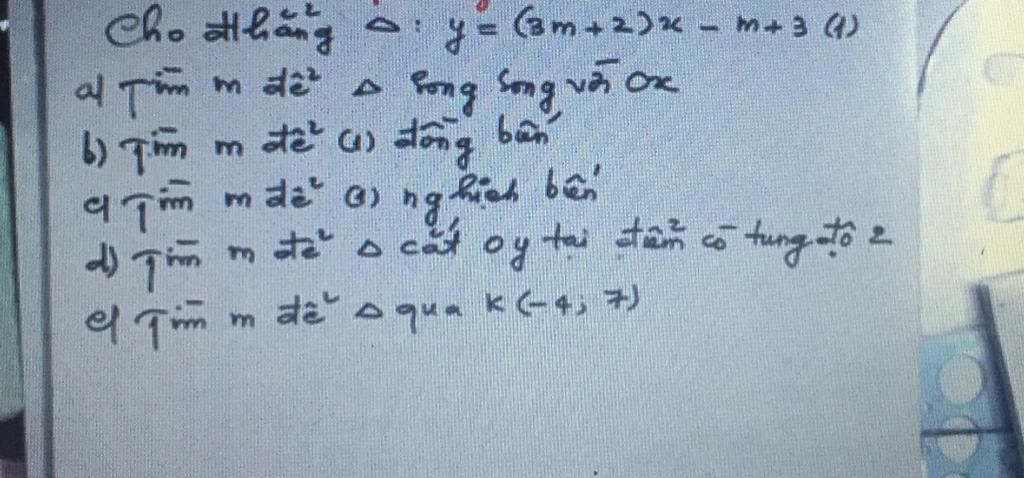 Cho đthẳng Δ: y = (3m+2)x - m+3 (1)
a) Tìm m để Δ song song với Ox
b) Tìm m để (1) đồng biến
c) Tìm m để (1) nghịch biến
d) Tìm m để Δ cắt oy tại điểm có tung độ 2
e) Tìm m để Δ qua K (-4; 7)